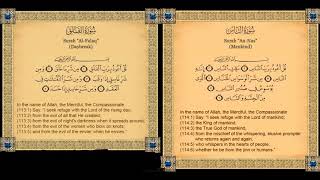 سُورَةُ الْفَلَقِ
Surah "Al-Falaq"
(Daybreak)
قُلْ أَعُوذُ بِرَبِّ الْفَلَقِ ۝ مِن شَرِّ مَا خَلَقَ ۝ وَمِن
شَرِّ غَاسِقٍ إِذَا وَقَبَ ۝ وَمِن شَرِّ النَّفَّاثَاتِ فِي
الْعُقَدِ ۝ وَمِن شَرِّ حَاسِدٍ إِذَا حَسَدَ ۝
In the name of Allah, the Merciful, the Compassionate
(113:1) Say: "I seek refuge with the Lord of the rising day;
(113:2) from the evil of all that He created;
(113:3) from the evil of night's darkness when it spreads around;
(113:4) from the evil of the women who blow on knots;
(113:5) and from the evil of the envier when he envies."
سُورَةُ النَّاسِ
Surah "An-Nas"
(Mankind)
قُلْ أَعُوذُ بِرَبِّ النَّاسِ ۝ مَلِكِ النَّاسِ ۝
إِلَٰهِ النَّاسِ ۝ مِن شَرِّ الْوَسْوَاسِ الْخَنَّاسِ ۝
الَّذِي يُوَسْوِسُ فِي صُدُورِ النَّاسِ ۝
مِنَ الْجِنَّةِ وَالنَّاسِ ۝
In the name of Allah, the Merciful, the Compassionate
(114:1) Say: "I seek refuge with the Lord of mankind,
(114:2) the King of mankind,
(114:3) the True God of mankind,
(114:4) from the mischief of the whispering, elusive prompter
who returns again and again,
(114:5) who whispers in the hearts of people,
(114:6) whether he be from the jinn or humans."